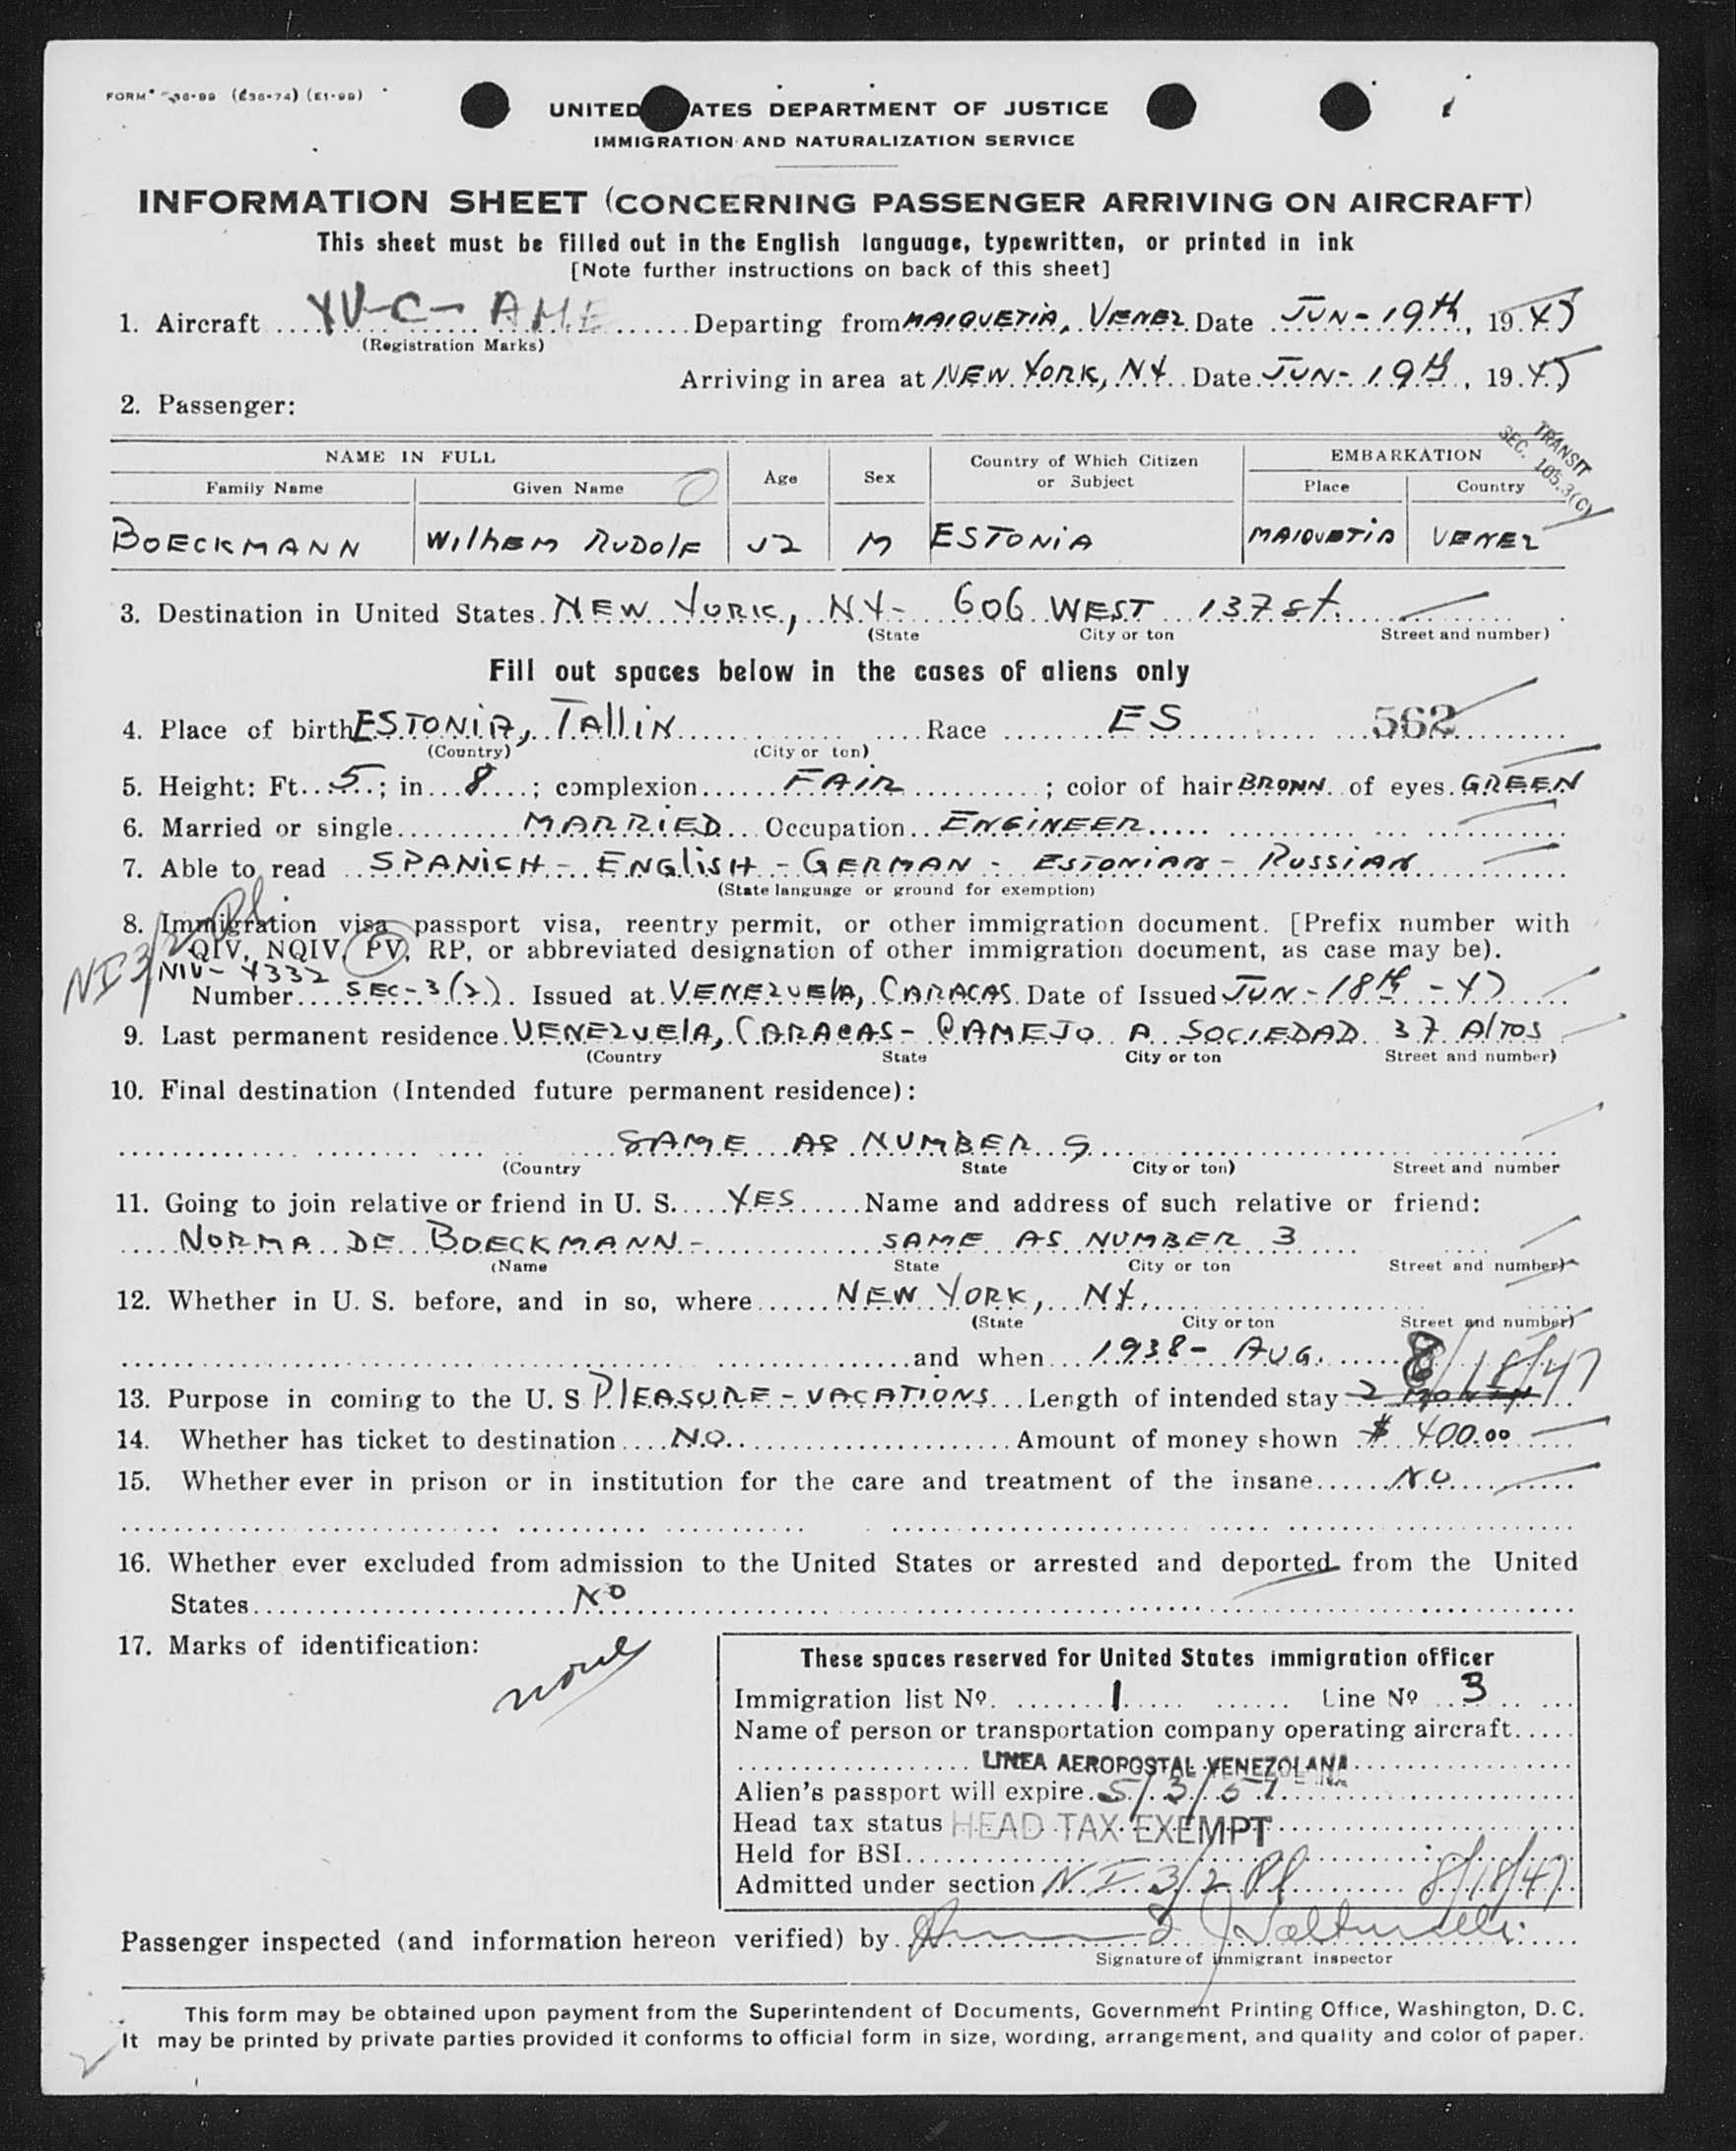 UNITED ATES DEPARTMENT OF JUSTICE
IMMIGRATION AND NATURALIZATION SERVICE
INFORMATION SHEET (CONCERNING PASSENGER ARRIVING ON AIRCRAFT)
This sheet must be filled out in the English language, typewritten, or printed in ink
[Note further instructions on back of this sheet]
1. Aircraft YV-C-AME Departing from MAIQUETIA, VENEZ Date JUN-19th, 1947
(Registration Marks)
Arriving in area at NEW YORK, NY Date JUN-19th, 1947
2. Passenger:
TRANSIT
SEC. 105.3(C)
NAME IN FULL Age Sex Country of Which Citizen or Subject EMBARKATION
Family Name Given Name Place Country
BOECKMANN WilhEM RUDOlF 52 M ESTONIA MAIQUETIA VENEZ
3. Destination in United States. NEW YORK, NY- 606 WEST 137 st.
(State City or ton Street and number)
Fill out spaces below in the cases of aliens only
4. Place of birth ESTONIA, TAlliN Race ES 562
(Country) (City or ton)
5. Height: Ft. 5; in 8; complexion FAIR; color of hair BROWN of eyes. GREEN
6. Married or single MARRIED Occupation ENGINEER
7. Able to read SPANICH - ENGliSH - GERMAN - ESTONIAN - RUSSIAN
(State language or ground for exemption)
8. Immigration visa passport visa, reentry permit, or other immigration document. [Prefix number with
QIV, NQIV, PV, RP, or abbreviated designation of other immigration document, as case may be).
NI 3/2 Pl
NIV- 4332
Number SEC-3(2). Issued at VENEZUElA, CARACAS. Date of Issued JUN-18th -47
9. Last permanent residence. VENEZUElA, CARACAS- CAMEJO A SOCIEDAD 37 AlTOS
(Country State City or ton Street and number)
10. Final destination (Intended future permanent residence):
SAME AS NUMBER 9
(Country State City or ton) Street and number
11. Going to join relative or friend in U. S. YES Name and address of such relative or friend:
NORMA DE BOECKMANN - SAME AS NUMBER 3
(Name State City or ton Street and number)
12. Whether in U. S. before, and in so, where NEW YORK, NY,
(State City or ton Street and number)
and when 1938- AUG.
8/18/47
13. Purpose in coming to the U. S PlEASURE - VACATIONS Length of intended stay 2
14. Whether has ticket to destination NO Amount of money shown $ 400.00
15. Whether ever in prison or in institution for the care and treatment of the insane NO
16. Whether ever excluded from admission to the United States or arrested and deported from the United
States NO
17. Marks of identification:
none
These spaces reserved for United States immigration officer
Immigration list No. 1 Line No 3
Name of person or transportation company operating aircraft
LINEA AEROPOSTAL VENEZOLANA
Alien's passport will expire. 5/3/57
Head tax status HEAD TAX EXEMPT
Held for BSI
Admitted under section NI 3/2 Pl 8/18/47
Passenger inspected (and information hereon verified) by
Signature of immigrant inspector
This form may be obtained upon payment from the Superintendent of Documents, Government Printing Office, Washington, D. C.
It may be printed by private parties provided it conforms to official form in size, wording, arrangement, and quality and color of paper.